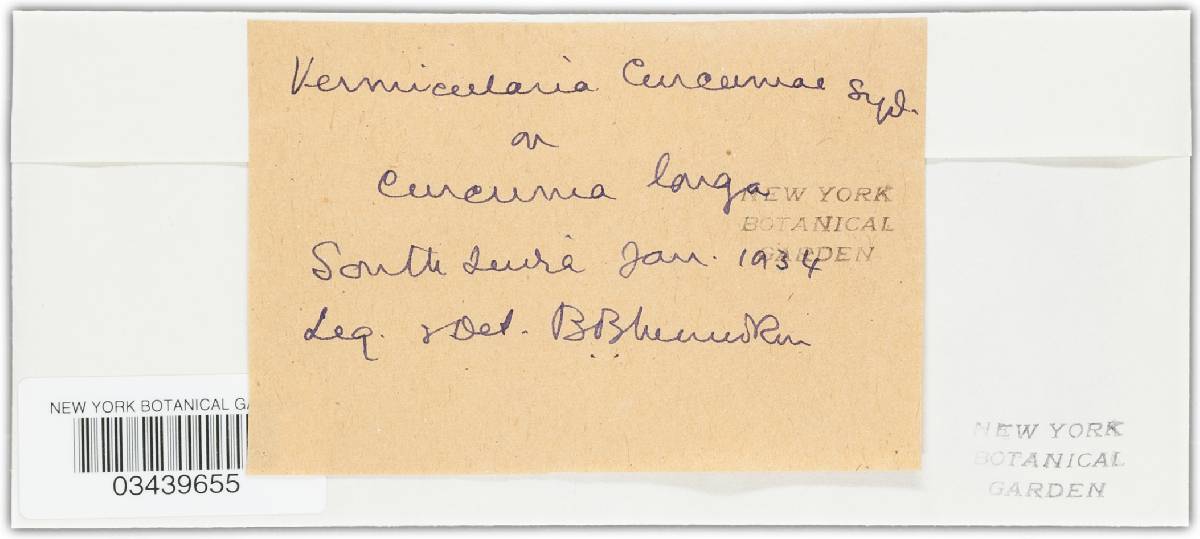 Vermicularia Curcumae Syd.
on
Curcuma longa
NEW YORK
BOTANICAL
GARDEN
South India Jan. 1934
Leg. & Det.
NEW YORK BOTANICAL GA
03439655
NEW YORK
BOTANICAL
GARDEN